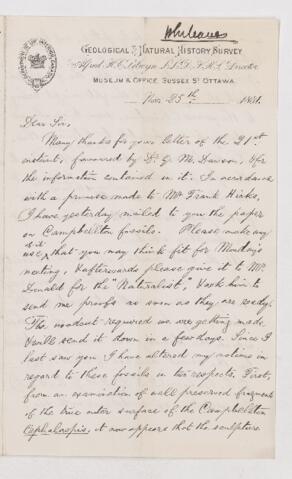 Whiteaves
GEOLOGICAL & NATURAL HISTORY SURVEY
Alfred R. C. Selwyn L.L.D. F.R.S. Director
MUSEUM & OFFICE, SUSSEX ST. OTTAWA.
Nov. 25th 1881.
Dear Sir,
Many thanks for your letter of the 21st
instant, favoured by Dr G. M. Dawson, & for
the information contained in it. In accordance
with a promise made to Mr Frank Hicks,
I have yesterday mailed to you the paper
on Campbellton fossils. Please make any
use of it that you may think fit for Monday's
meeting, & afterwards please give it to Mr
Donald for the "Naturalist", & ask him to
send me proofs as soon as they are ready.
The woodcut required we are getting made
& will send it down in a few days. Since I
last saw you I have altered my notions in
regard to these fossils in two respects. First,
from an examination of well preserved fragments
of the true outer surface of the Campbellton
Cephalaspis, it now appears that the sculpture